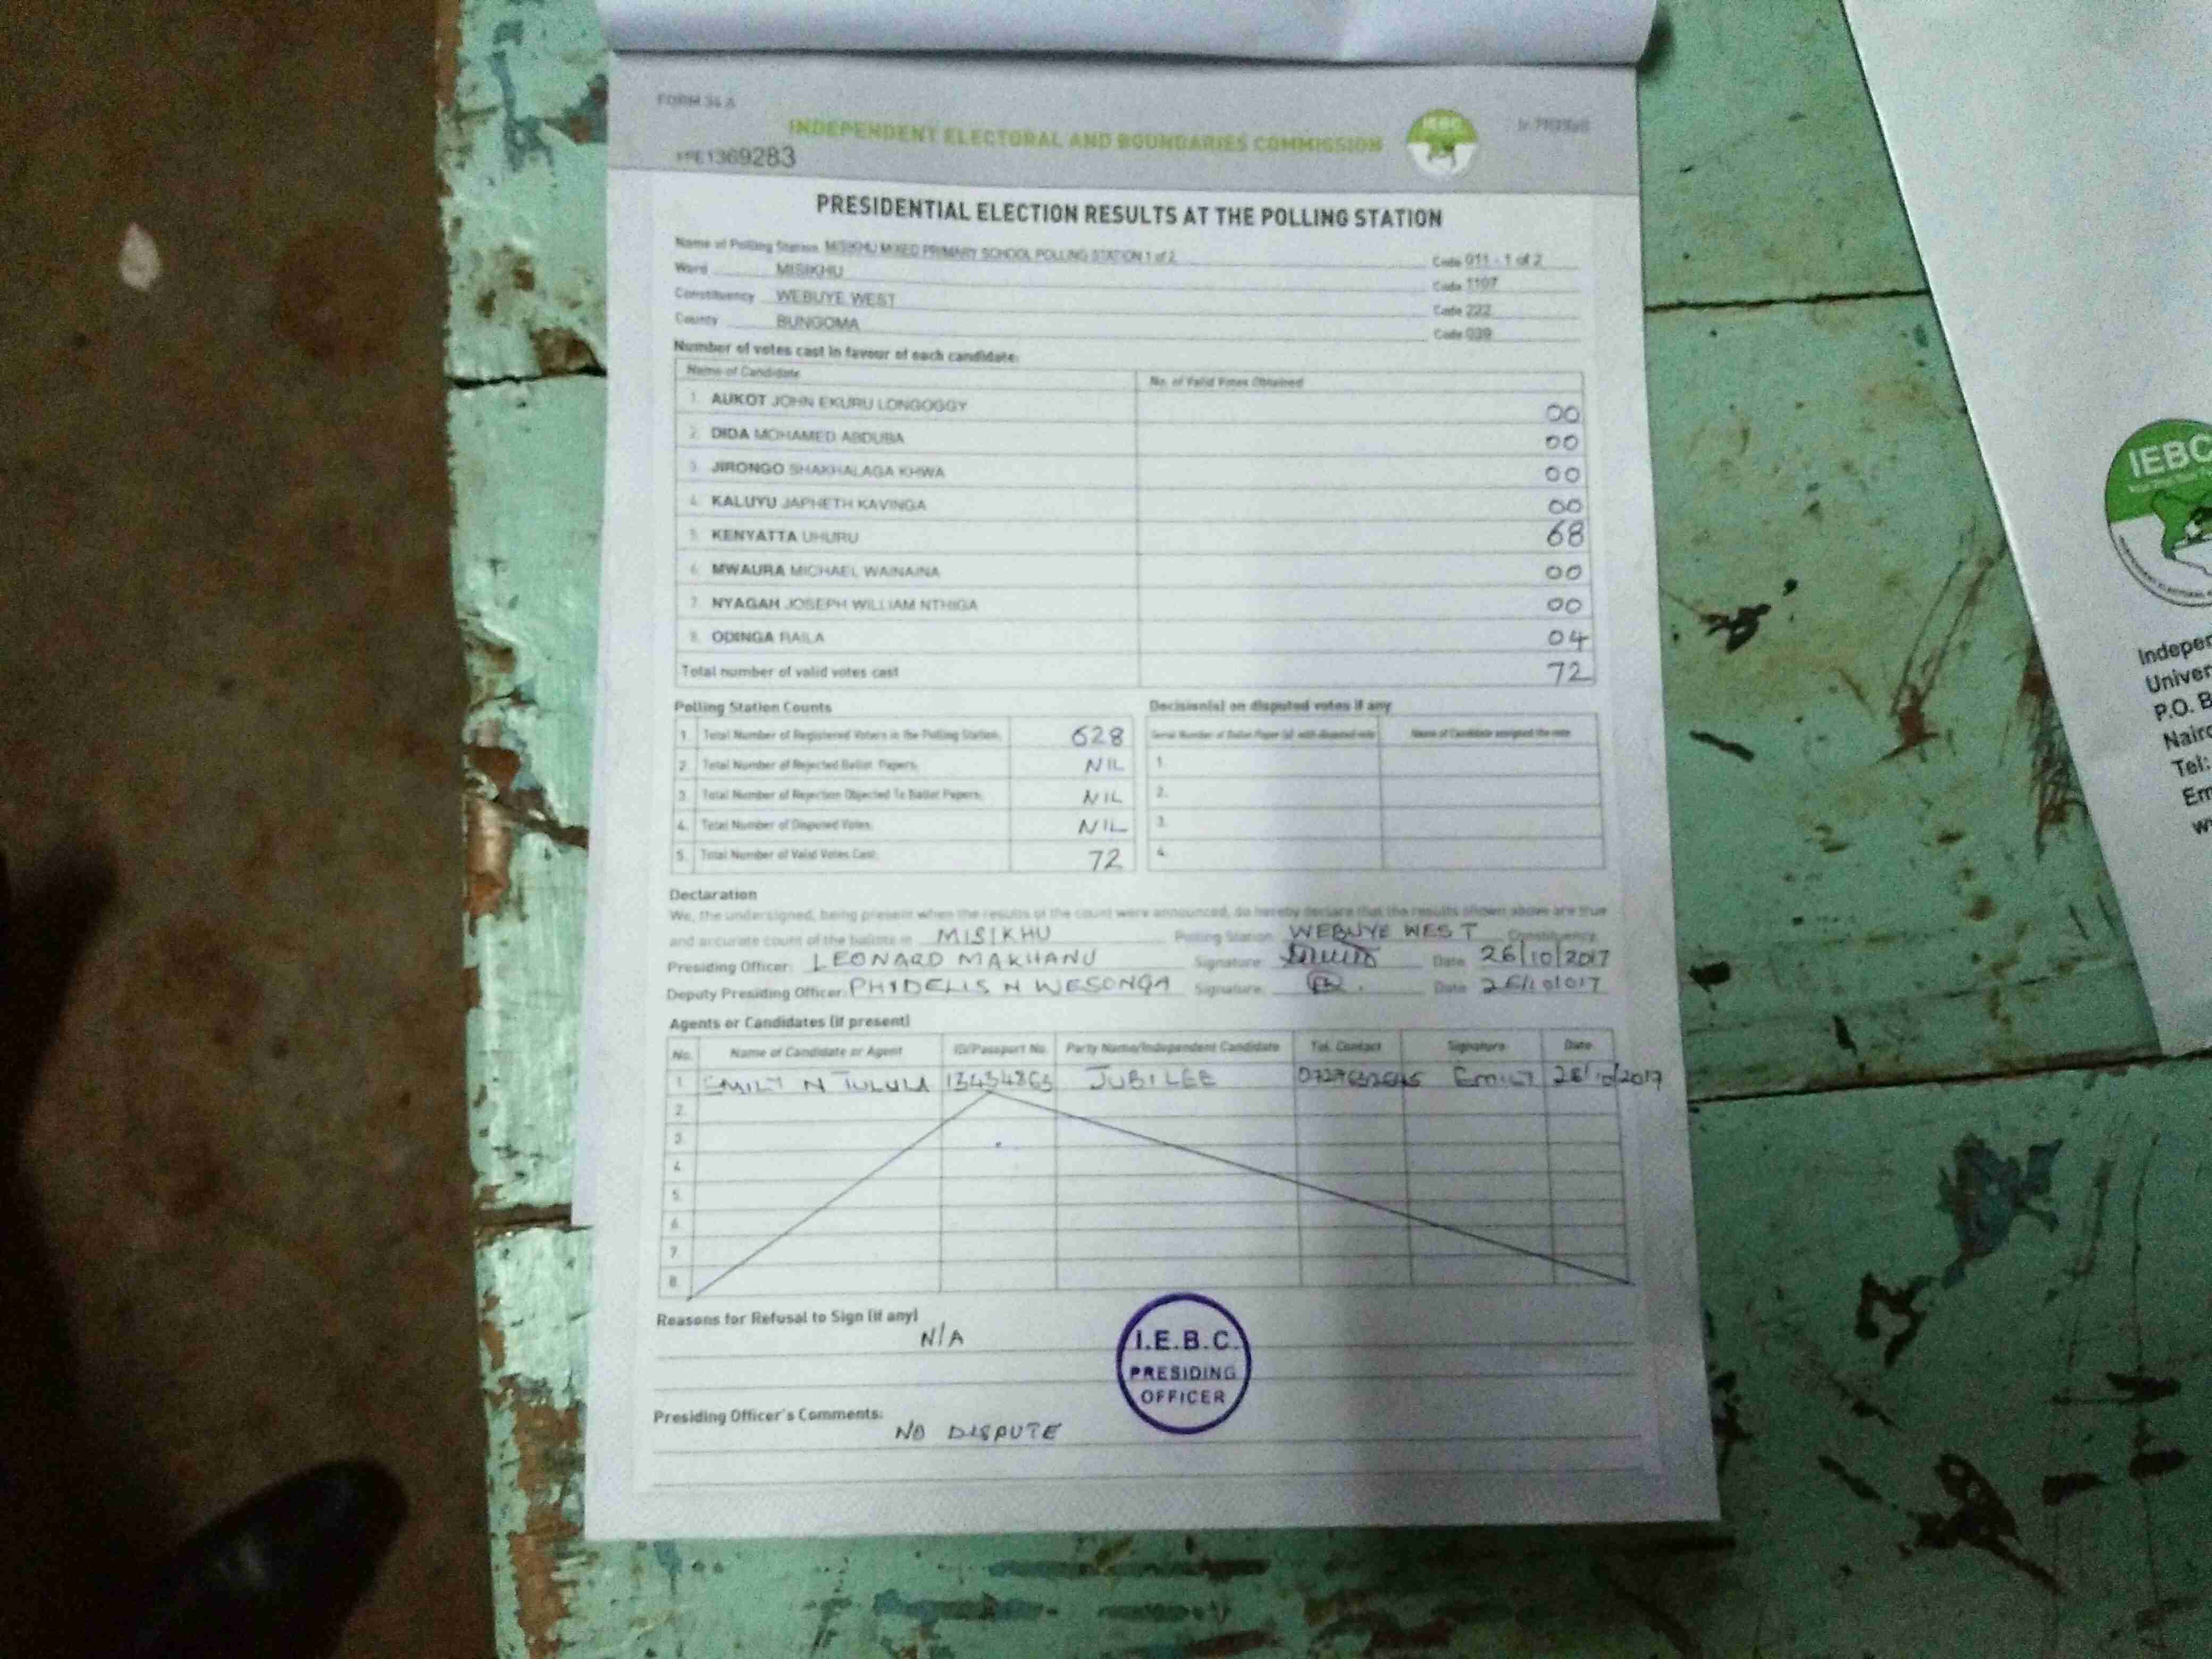 FORM 34 A
INDEPENDENT ELECTORAL AND BOUNDARIES COMMISSION
IEBC
1369283
PRESIDENTIAL ELECTION RESULTS AT THE POLLING STATION
Name of Polling Station MISIKHU MIXED PRIMARY SCHOOL POLLING STATION 1 of 2 Code 011 - 1 of 2
Ward MISIKHU Code 1107
Constituency WEBUYE WEST Code 222
County BUNGOMA Code 039
Number of votes cast in favour of each candidate:
Name of Candidate No. of Valid Votes Obtained
1. AUKOT JOHN EKURU LONGOGGY 00
2. DIDA MOHAMED ABDUBA 00
3. JIRONGO SHAKHALAGA KHWA 00
4. KALUYU JAPHETH KAVINGA 00
5. KENYATTA UHURU 68
6. MWAURA MICHAEL WAINAINA 00
7. NYAGAH JOSEPH WILLIAM NTHIGA 00
8. ODINGA RAILA 04
Total number of valid votes cast 72
Polling Station Counts
1. Total Number of Registered Voters in the Polling Station 628
2. Total Number of Rejected Ballot Papers NIL
3. Total Number of Rejection Objected To Ballot Papers NIL
4. Total Number of Disputed Votes NIL
5. Total Number of Valid Votes Cast 72
Decision(s) on disputed votes if any
Serial Number of Ballot Paper (s) with disputed vote Name of Candidate assigned the vote
1.
2.
3.
4.
Declaration
We, the undersigned, being present when the results of the count were announced, do hereby declare that the results shown above are true
and accurate count of the ballots in MISIKHU Polling Station WEBUYE WEST Constituency
Presiding Officer: LEONARD MAKHANU Signature: Date 26/10/2017
Deputy Presiding Officer: PHIDELIS N WESONGA Signature: Date
Agents or Candidates (if present)
No. Name of Candidate or Agent ID/Passport No. Party Name/Independent Candidate Tel. Contact Signature Date
1. EMILY N TULULA 13434863 JUBILEE EMILY 26/10/2017
2.
3.
4.
5.
6.
7.
8.
Reasons for Refusal to Sign (if any)
N/A
I.E.B.C.
PRESIDING
OFFICER
Presiding Officer's Comments:
NO DISPUTE
IEBC
Tel: